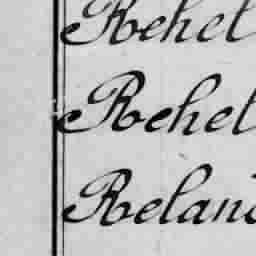 Rehel
Rehel
Relan